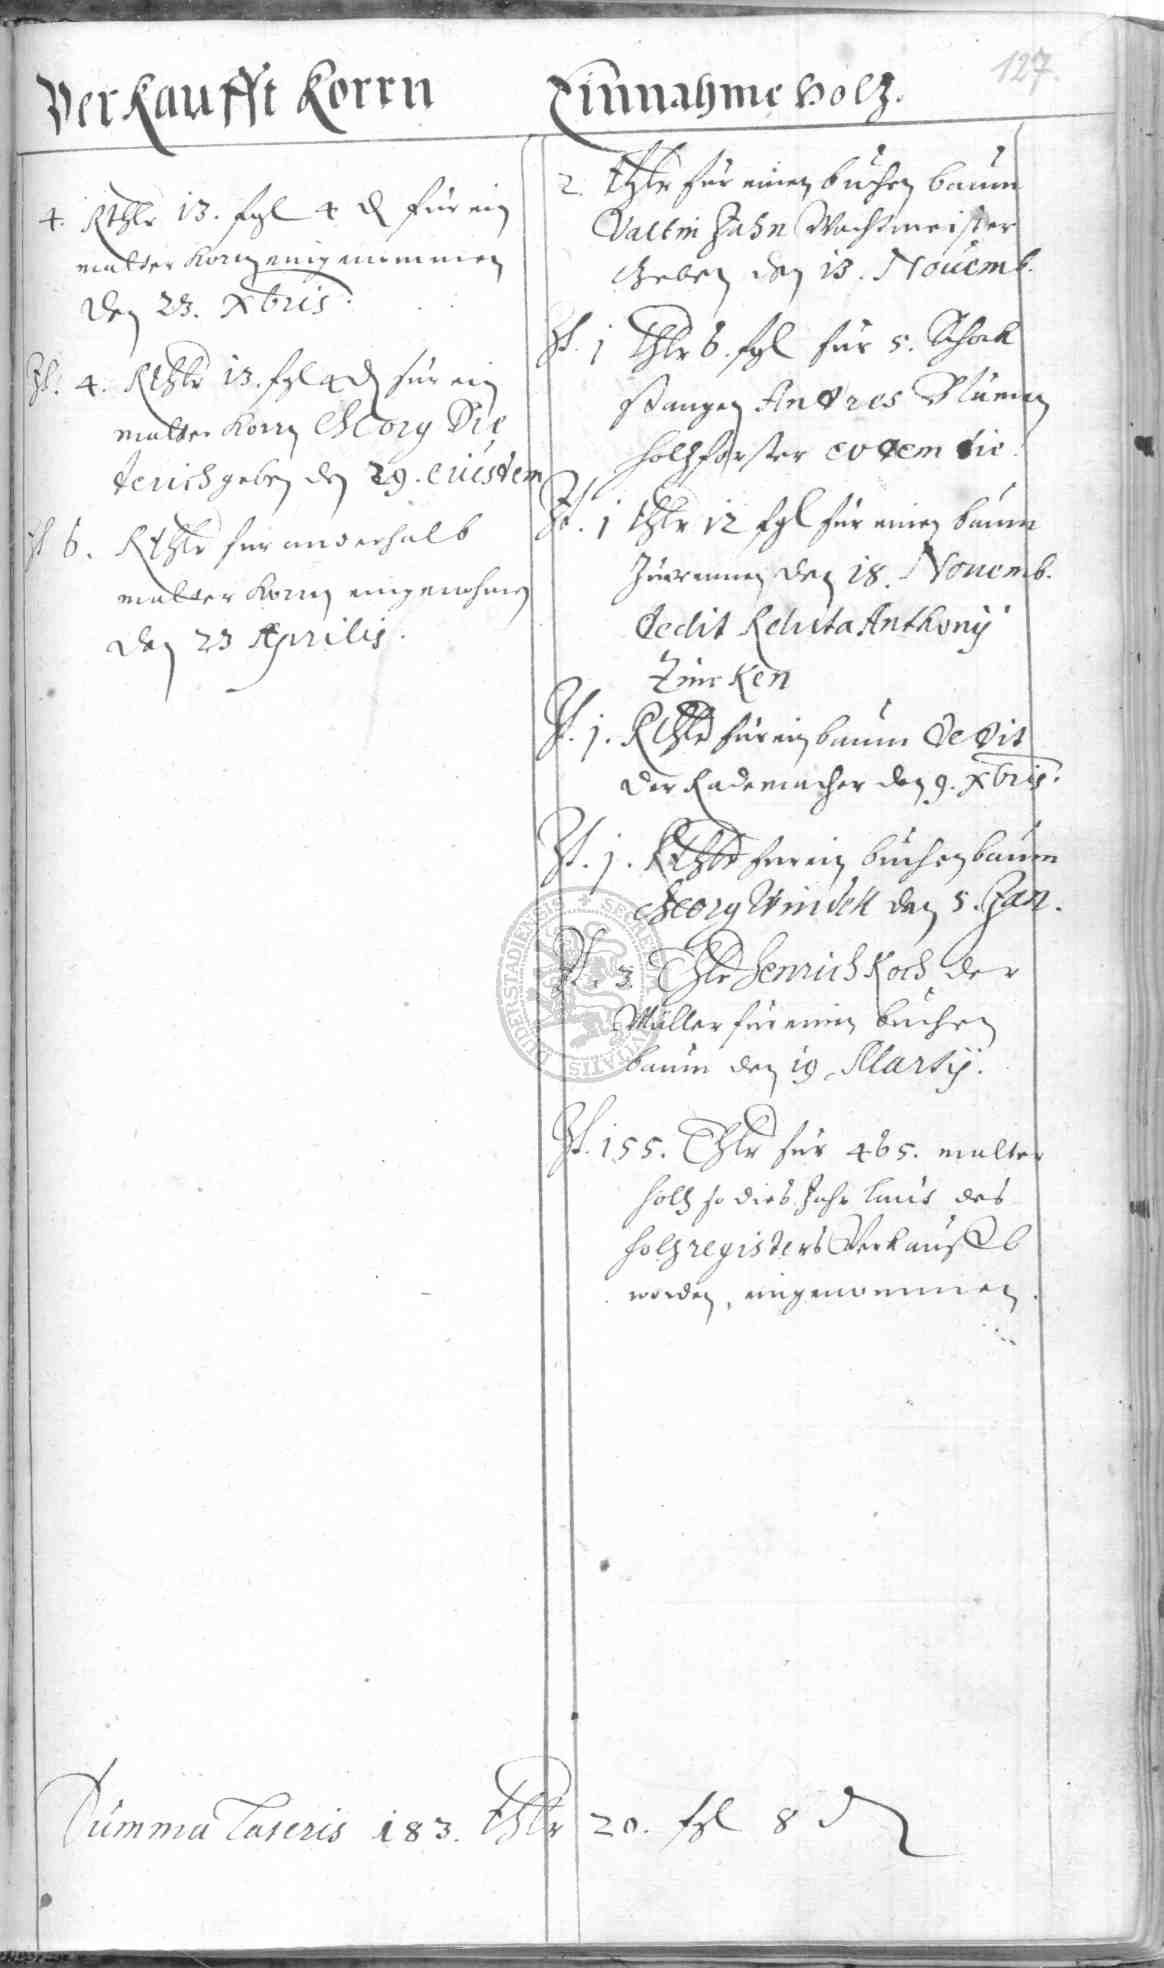 127.
Verkaufft Korrn
4. Rthlr 13. fgl 4 d für ein
malter Korn eingenommen
den 23. Xbris.
It. 4. Rthlr 13. fgl 4 d für ein
malter Korn Georg Die
terich geben den 29. eiusdem
It 6. Rthlr für anderhalb
malter Korn eingenohmen
den 23 Aprilis.
Einnahme Holz.
2. thlr für einen buchen baum
Valtin Jahn Wachtmeister
Geben den 13. Nouemb.
It. 1 thlr 6. fgl für 5. Schock
stangen Andres
holtzforster eodem die.
It. 1 thlr 12 fgl für einen baum
den 18. Nouemb.
dedit Relicta Anthonij
Zincken
It. 1. Rthlr für ein baum dedit
der Rademacher den 9. Xbris.
It. 1. Rthlr für ein buchen baum
Georg Windelt den 5. Jan.
It. 3. Thlr Henrich Koch der
Müller für einen buchen
baum den 19 Martij.
It. 155. Thlr für 465. malter
holtz so dies Jahr lauts des
holtzregisters Verkaufft
worden, eingenommen.
Summa Lateris 183. thlr 20. fgl 8 d
SECRETUM CIVITATIS DUDERSTADIENSIS